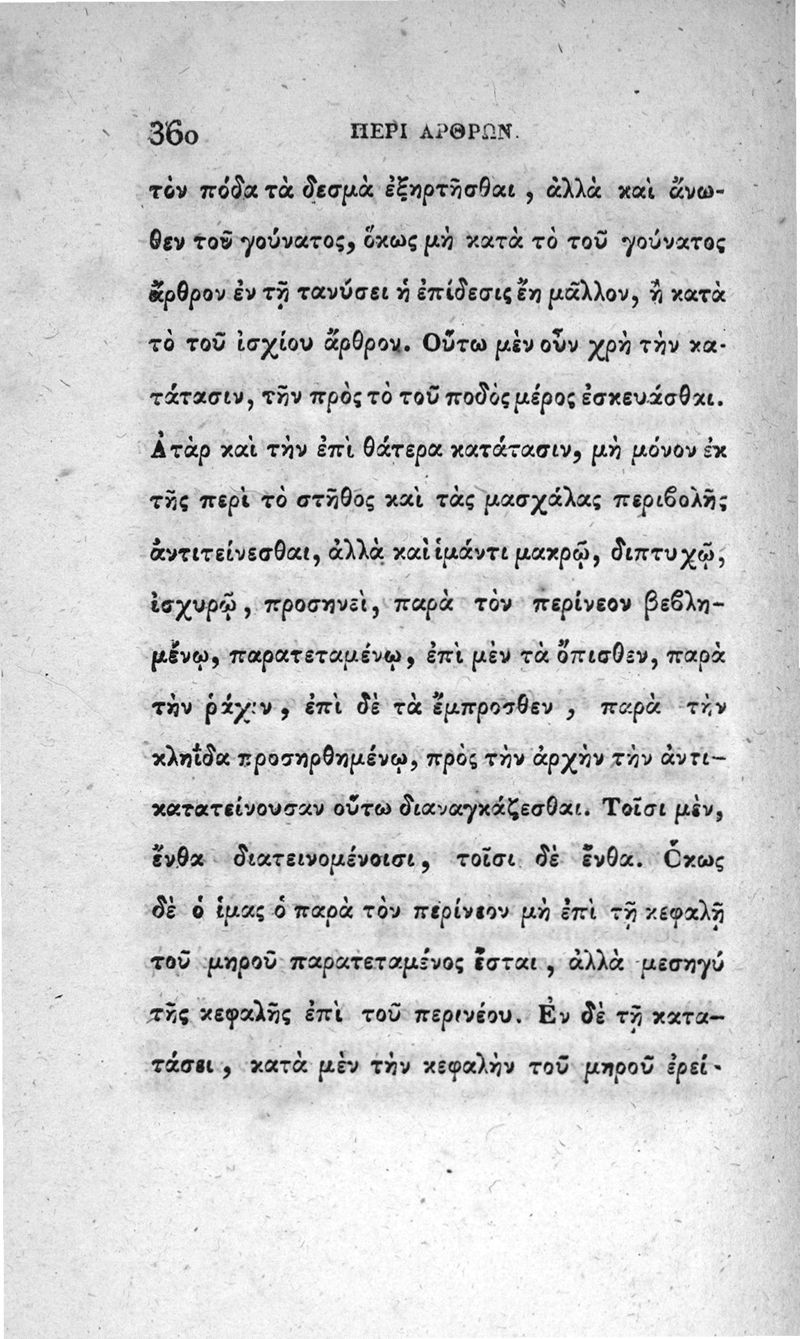 360 ΠΕΡΙ ΑΡΘΡΩΝ.
τὸν πόδα τὰ δεσμὰ ἐξηρτῆσθαι , ἀλλὰ καὶ ἄνω-
θεν τοῦ γούνατος, ὅκως μὴ κατὰ τὸ τοῦ γούνατος
ἄρθρον ἐν τῇ τανύσει ἡ ἐπίδεσις ἔῃ μᾶλλον, ἢ κατὰ
τὸ τοῦ ἰσχίου ἄρθρον. Οὕτω μὲν οὖν χρὴ τὴν κα-
τάτασιν, τὴν πρὸς τὸ τοῦ ποδὸς μέρος ἐσκευάσθαι.
Ἀτὰρ καὶ τὴν ἐπὶ θάτερα κατάτασιν, μὴ μόνον ἐκ
τῆς περὶ τὸ στῆθος καὶ τὰς μασχάλας περιβολῆς
ἀντιτείνεσθαι, ἀλλὰ καὶ ἱμάντι μακρῷ, διπτυχῷ,
ἰσχυρῷ , προσηνεῖ, παρὰ τὸν περίνεον βεβλη-
μένῳ, παρατεταμένῳ, ἐπὶ μὲν τὰ ὄπισθεν, παρὰ
τὴν ῥάχιν , ἐπὶ δὲ τὰ ἔμπροσθεν , παρὰ τὴν
κληῖδα προσηρθημένῳ, πρὸς τὴν ἀρχὴν τὴν ἀντι-
κατατείνουσαν οὕτω διαναγκάζεσθαι. Τοῖσι μὲν,
ἔνθα διατεινομένοισι , τοῖσι δὲ ἔνθα. Ὅκως
δὲ ὁ ἱμας ὁ παρὰ τὸν περίνεον μὴ ἐπὶ τῇ κεφαλῇ
τοῦ μηροῦ παρατεταμένος ἔσται , ἀλλὰ μεσηγύ
τῆς κεφαλῆς ἐπὶ τοῦ περινέου. Ἐν δὲ τῇ κατα-
τάσει , κατὰ μὲν τὴν κεφαλὴν τοῦ μηροῦ ἐρεί-